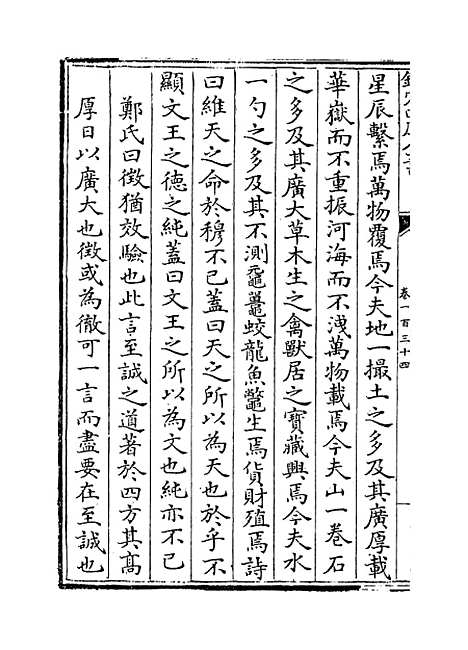 卷一百三十四
星辰繫焉萬物覆焉今夫地一撮土之多及其廣厚載
華嶽而不重振河海而不洩萬物載焉今夫山一卷石
之多及其廣大草木生之禽獸居之寶藏興焉今夫水
一勺之多及其不測黿鼉蛟龍魚鼈生焉貨財殖焉詩
曰維天之命於穆不已蓋曰天之所以為天也於乎不
顯文王之德之純蓋曰文王之所以為文也純亦不已
鄭氏曰徵猶效驗也此言至誠之道著於四方其髙
厚日以廣大也徵或為徹可一言而盡要在至誠也